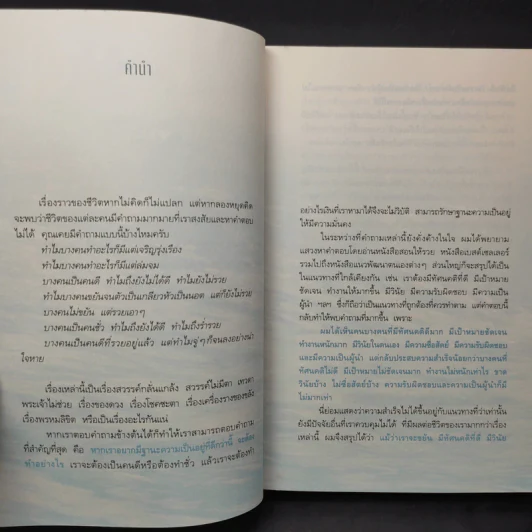 คำนำ
เรื่องราวของชีวิตหากไม่คิดก็ไม่แปลก แต่หากลองหยุดคิด
จะพบว่าชีวิตของแต่ละคนมีคำถามมากมายที่เราสงสัยและหาคำตอบ
ไม่ได้ คุณเคยมีคำถามแบบนี้บ้างไหมครับ
ทำไมบางคนทำอะไรก็มีแต่เจริญรุ่งเรือง
ทำไมบางคนทำอะไรก็มีแต่ล่มจม
บางคนเป็นคนดี ทำไมถึงยังไม่ได้ดี ทำไมยังไม่รวย
ทำไมบางคนขยันจนตัวเป็นเกลียวหัวเป็นนอต แต่ก็ยังไม่รวย
บางคนไม่ขยัน แต่รวยเอาๆ
บางคนเป็นคนชั่ว ทำไมถึงยังได้ดี ทำไมถึงร่ำรวย
บางคนเป็นคนดีที่รวยอยู่แล้ว แต่ทำไมจู่ๆ ก็จนลงอย่างน่า
ใจหาย
เรื่องเหล่านี้เป็นเรื่องสวรรค์กลั่นแกล้ง สวรรค์ไม่มีตา เทวดา
พระเจ้าไม่ช่วย เรื่องของดวง เรื่องโชคชะตา เรื่องเครื่องรางของขลัง
เรื่องพรหมลิขิต หรือเป็นเรื่องอะไรกันแน่
หากเราตอบคำถามข้างต้นได้ก็ทำให้เราสามารถตอบคำถาม
ที่สำคัญที่สุด คือ หากเราอยากมีฐานะความเป็นอยู่ที่ดีกว่านี้ จะต้อง
ทำอย่างไร เราจะต้องเป็นคนดีหรือต้องทำชั่ว แล้วเราจะต้องทำ
อย่างไรเงินที่เราหามาได้จึงจะไม่วิบัติ สามารถรักษาฐานะความเป็นอยู่
ให้มีความมั่นคง
ในระหว่างที่คำถามเหล่านี้ยังค้างคาในใจ ผมได้พยายาม
แสวงหาคำตอบโดยอ่านหนังสือสอนให้รวย หนังสือเบสต์เซลเลอร์
รวมไปถึงหนังสือแนวพัฒนาตนเองต่างๆ ส่วนใหญ่ก็จะสรุปได้เป็น
ในแนวทางที่ใกล้เคียงกัน เช่น เราต้องมีทัศนคติที่ดี มีเป้าหมาย
ชัดเจน ทำงานให้มากขึ้น มีวินัย มีความรับผิดชอบ มีความเป็น
ผู้นำ ฯลฯ ซึ่งก็ถือว่าเป็นแนวทางที่ถูกต้องที่ควรทำตาม แต่คำตอบนี้
กลับทำให้พบคำถามที่มากขึ้น เพราะ
ผมได้เห็นคนบางคนที่มีทัศนคติดีมาก มีเป้าหมายชัดเจน
ทำงานหนักมาก มีวินัยในตนเอง มีความซื่อสัตย์ มีความรับผิดชอบ
และมีความเป็นผู้นำ แต่กลับประสบความสำเร็จน้อยกว่าบางคนที่
ทัศนคติไม่ดี มีเป้าหมายไม่ชัดเจนมาก ทำงานไม่หนักเท่าไร ขาด
วินัยบ้าง ไม่ซื่อสัตย์บ้าง ความรับผิดชอบและความเป็นผู้นำก็มี
ไม่มากเท่า
นี่ย่อมแสดงว่าความสำเร็จไม่ได้ขึ้นอยู่กับแนวทางที่ว่าเท่านั้น
ยังมีปัจจัยอื่นที่เราควบคุมไม่ได้ ที่มีผลต่อชีวิตของเรามากกว่าเรื่อง
เหล่านี้ ผมจึงสรุปได้ว่า แม้ว่าเราจะขยัน มีทัศนคติที่ดี มีวินัย